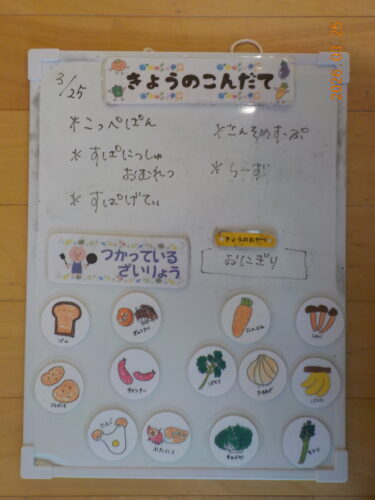 2025 03 25
きょうのこんだて
3/25
*こっぺぱん
*すぱにっしゅ
おむれつ
*すぱげてぃ
*こんそめすーぷ
*ちーず
つかっている
ざいりょう
きょうのおやつ
おにぎり
ぱん
ぎゅうにく
にんじん
しめじ
じゃがいも
ウインナー
ぱせり
たまねぎ
ばなな
たまご
ぶたにく
きゃべつ